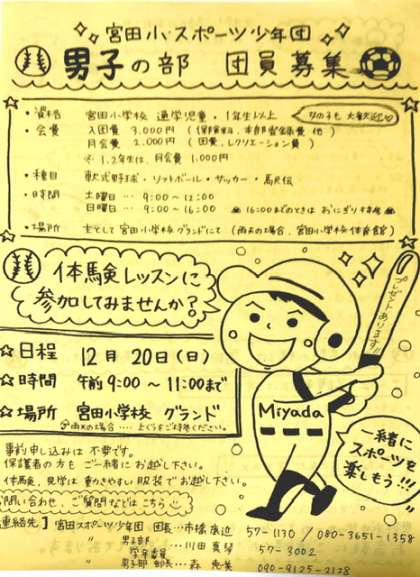 宮田小・スポーツ少年団
男子の部 団員募集
・資格 宮田小学校 通学児童・1年生以上 女の子も大歓迎♡
・会費 入団費 3,000円 (保険料、本部登録費 他)
月会費 2,000円 (団費、レクリエーション費)
※1,2年生は、月会費 1,000円
・種目 軟式野球・ソフトボール・サッカー・駅伝
・時間 土曜日… 9:00〜12:00
日曜日… 9:00〜16:00 16:00までのときは おにぎり持参
・場所 主として 宮田小学校グランドにて (雨天の場合、宮田小学校体育館)
体験レッスンに
参加してみませんか?
プレゼントあります!!
☆日程 12月20日(日)
☆時間 午前9:00〜11:00まで
☆場所 宮田小学校 グランド
雨天の場合…上ぐつをご持参ください。
Miyada
一緒に
スポーツを
楽しもう!!!
事前申し込みは 不要です。
保護者の方も ご一緒に お越し下さい。
体験、見学は 動きやすい服装で お越し下さい。
お問い合わせ、ご質問などはこちら
連絡先】宮田スポーツ少年団 団長…市橋 57-1130 / 080-3651-1358
〃 男子部 学年委員…川田 57-3002
〃 男子部 部長…森 恵美 090-9125-2128